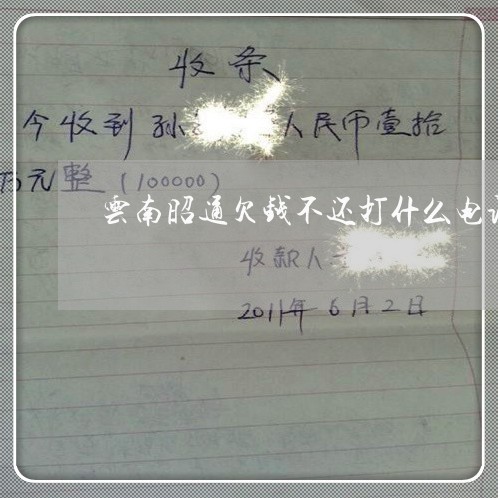 收条
今收到孙 人民币壹拾
万元整(100000)
雲南昭通欠钱不还打什么电
收款人
2011年6月2日